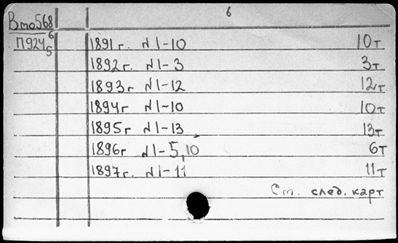 6
Вто568
П924 6/5
1891г. №1-10 10т
1892г. №1-3 3т
1893г №1-12 12т
1894г №1-10 10т
1895г №1-13 13т
1896г №1-5,10 6т
1897г. №1-11 11т
См. след. карт